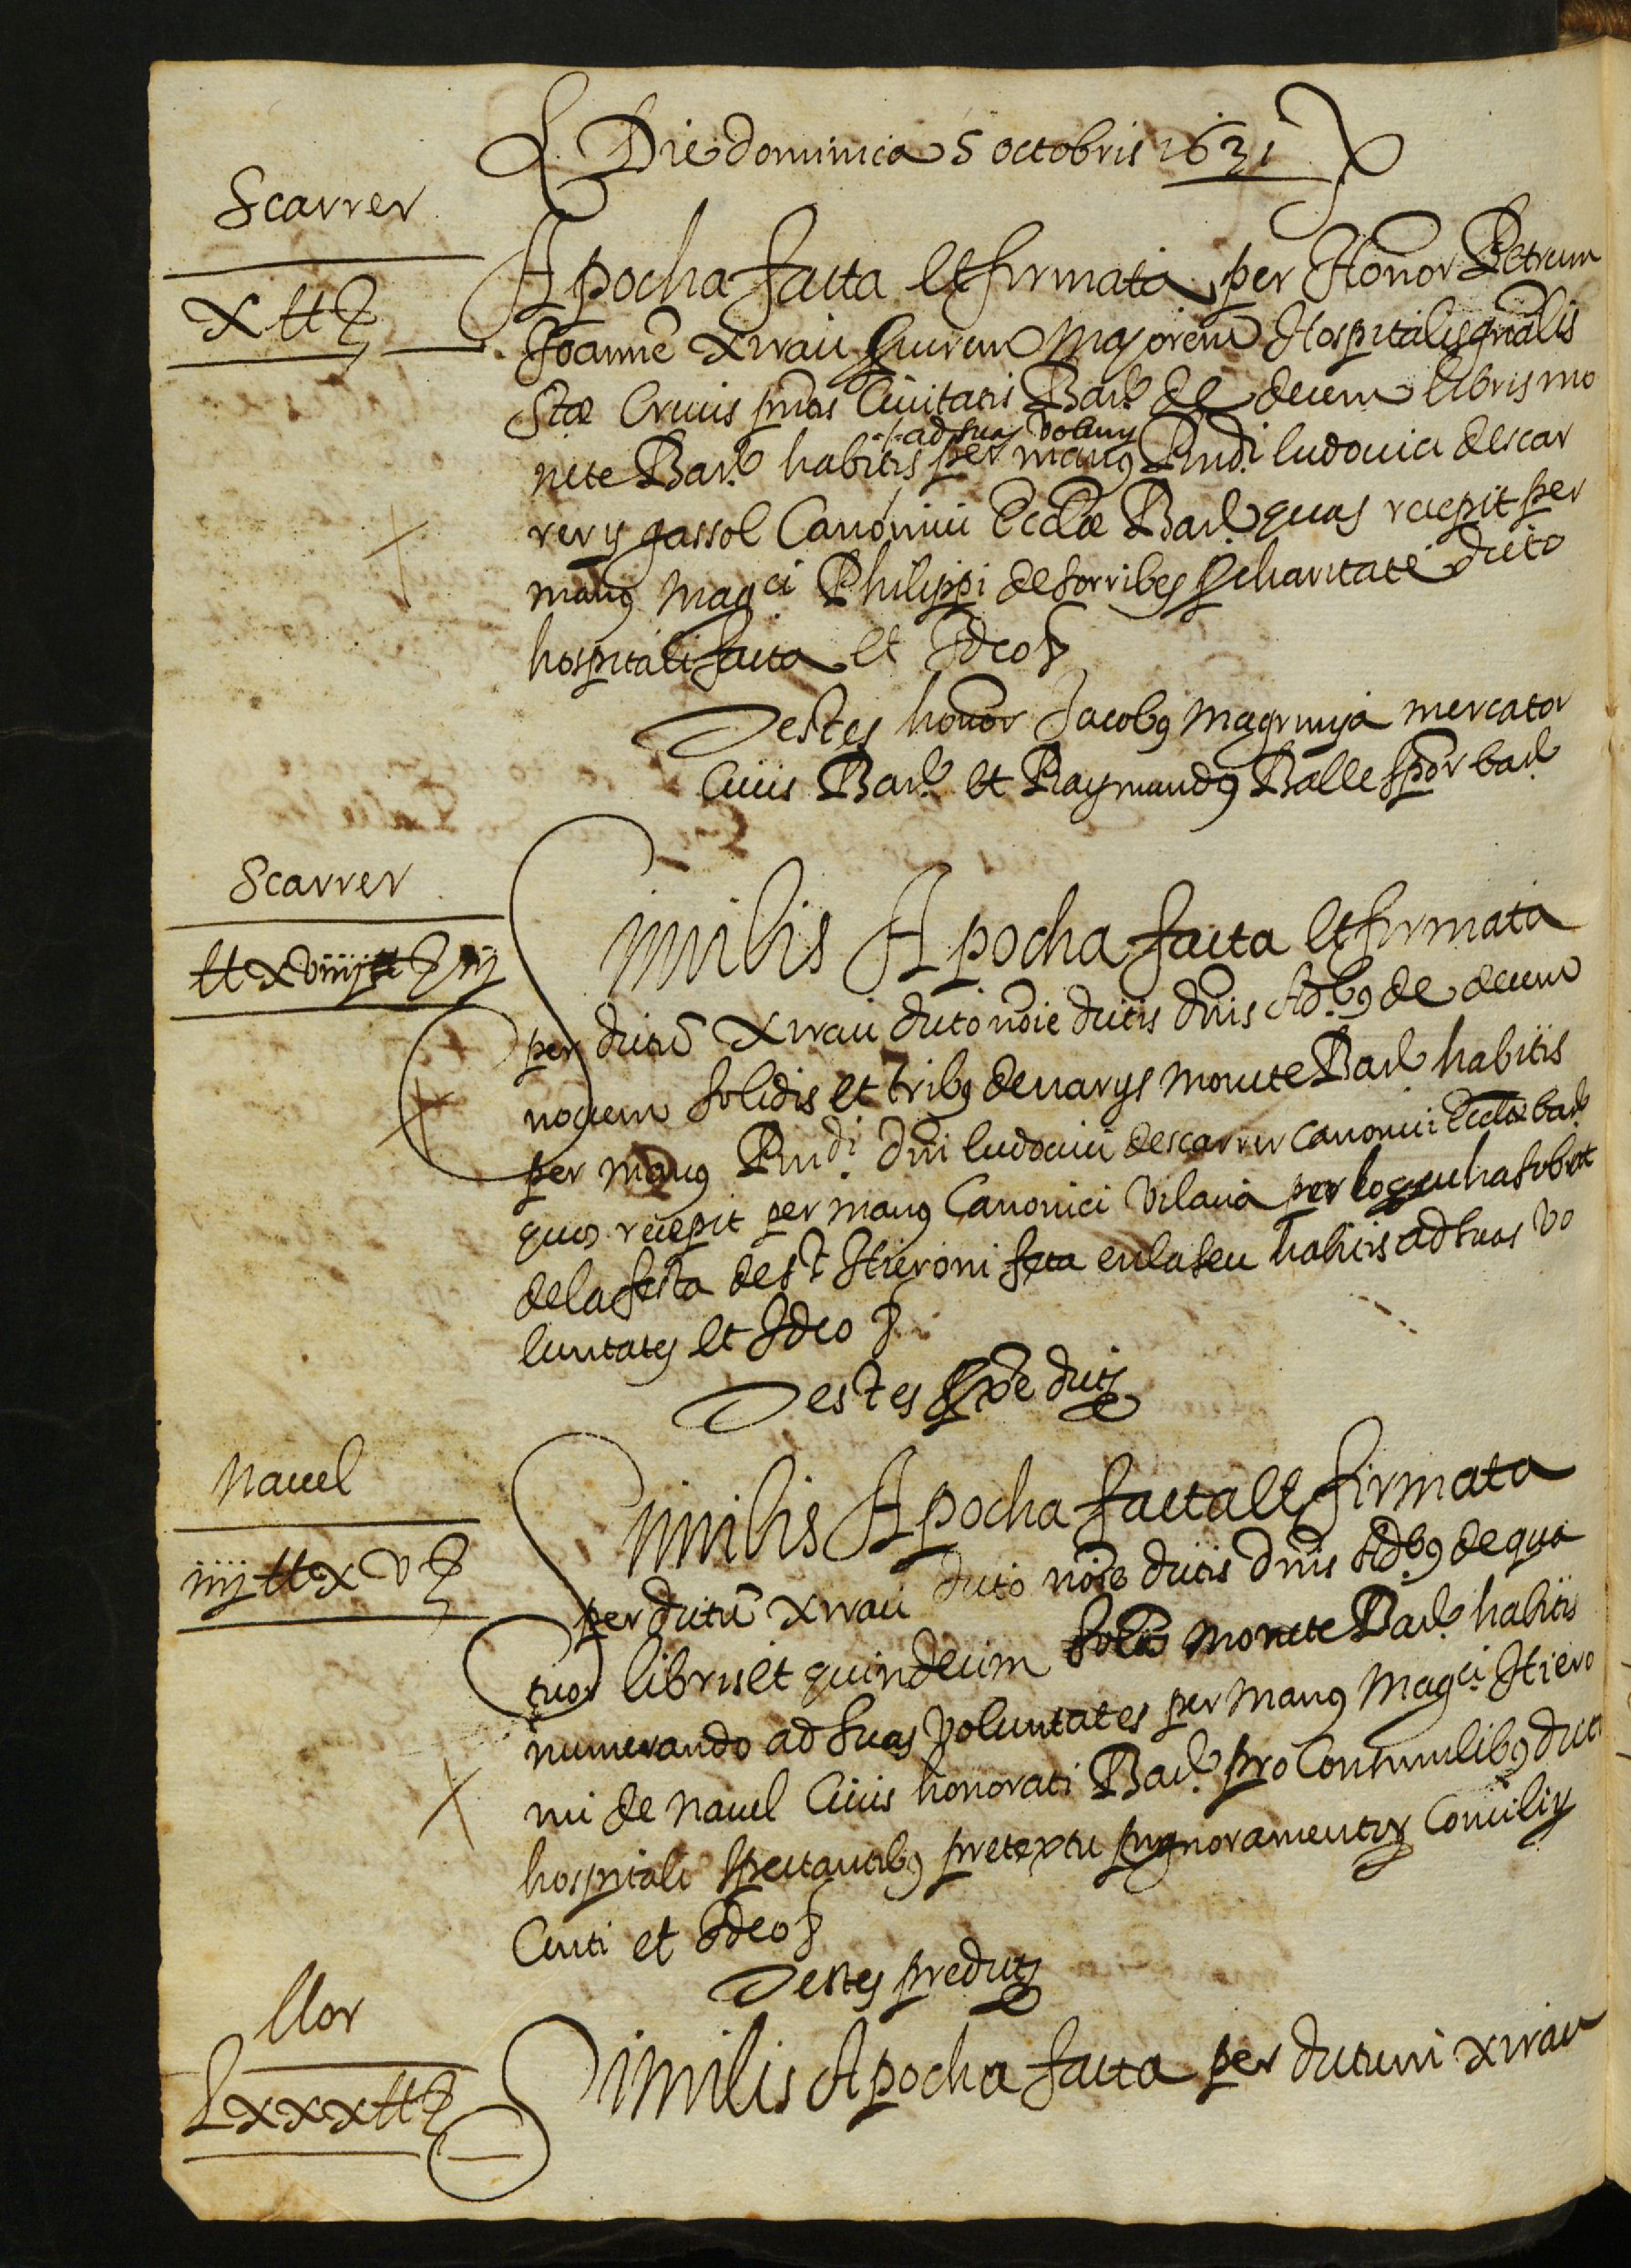 Die dominica 5 octobris 1631
Scarrer
X ll ẞ
Apocha facta et firmata per Honor Petrum
Joannē Xirau Priorem Majorem Hospitalis gn̄alis
Stæ Crucis pn̄tis Civitatis Barñe de decem libris mo
ad suas volunts
nete Barñe habitis per manus Rnd.i ludovici descar
rer y gassol Canonici Ecclæ Barñe quas recepit per
manus Magci Philippi de sorribes charitate dicto
hospitali facta et Ideo
Testes honor Jacobus Magrinya mercator
Civis Barñe et Raymundus Balle sp̄or barñe
Scarrer
ll xviiij ẞ iij
Similis Apocha facta et firmata
per dictū Xirau dicto noīe dictis dnīs Ad.bus de decem
novem solidis et tribus denarys monete Barñe habitis
per manus Rndi. Dnī ludovici descarrer canonici Ecclæ barñe
quos recepit per manus Canonici Vilana per lo que ha sobrat
de la festa de St Hieroni feta en la seu habitis ad suas vo
luntates et Ideo
Testes predicti
Navel
iiij ll x v ẞ
Similis Apocha facta et firmata
per dictū Xirau dicto noīe dictis Dnīs Adbus de qua
tuor libris et quindecim solis monete Barñe habitis
numerando ad suas voluntates per manus Magci. Hiero
ni de Navel Civis honorati Barñe pro Consimilibus dicto
hospitali spectantibus pretextu pignoramentis Concilij
Centi et Ideo
Testes predicti
llor
Lxxx ll ẞ
Similis Apocha facta per dictum xirau